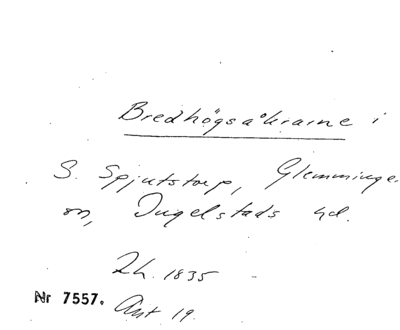 Bredhögsåkrarne i
S. Spjutstorp, Glemminge
sn, Ingelstads hd.
Lh. 1835
Nr 7557. Akt 19.